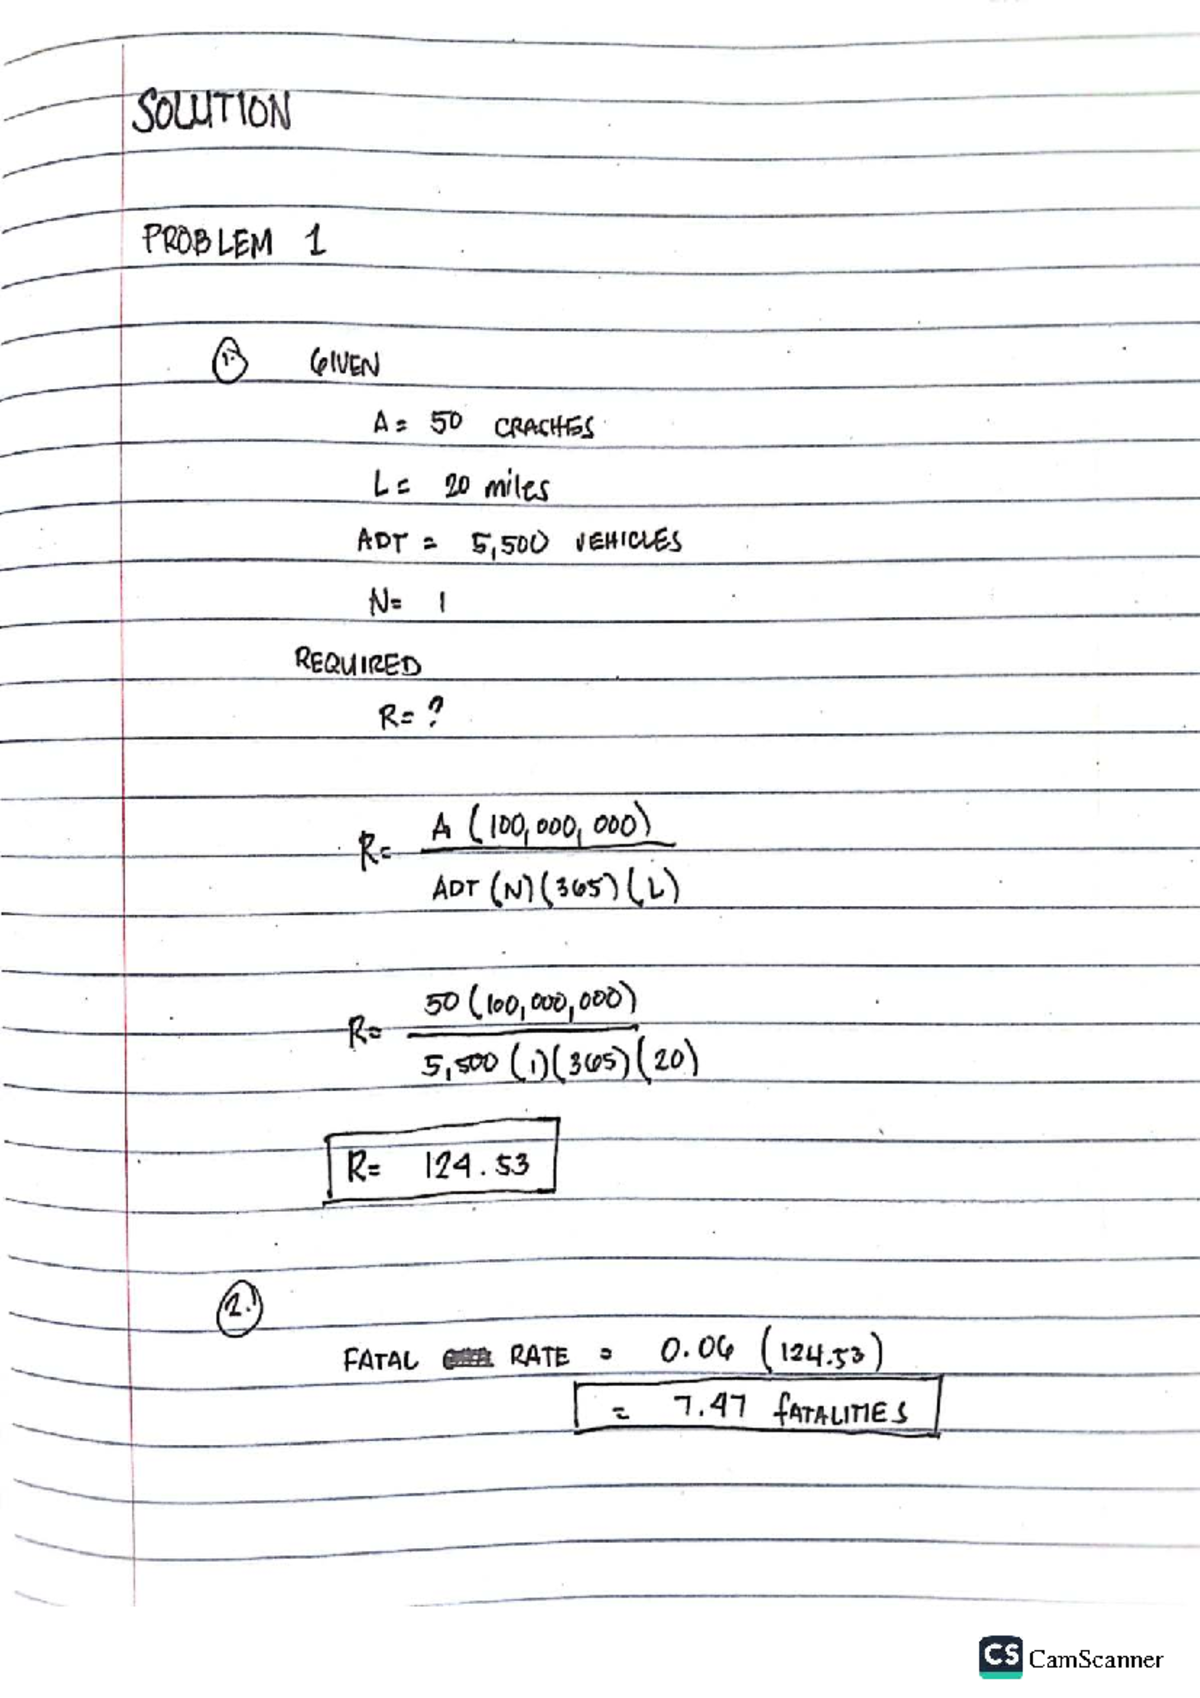 SOLUTION
PROBLEM 1
1.) GIVEN
A= 50 CRACHES
L= 20 miles
ADT = 5,500 VEHICLES
N= 1
REQUIRED
R= ?
R= A (100,000,000)
ADT (N)(365)(L)
R= 50 (100,000,000)
5,500 (1)(365)(20)
R= 124.53
2.)
FATAL RATE = 0.06 (124.53)
= 7.47 fATALITIES
CS CamScanner